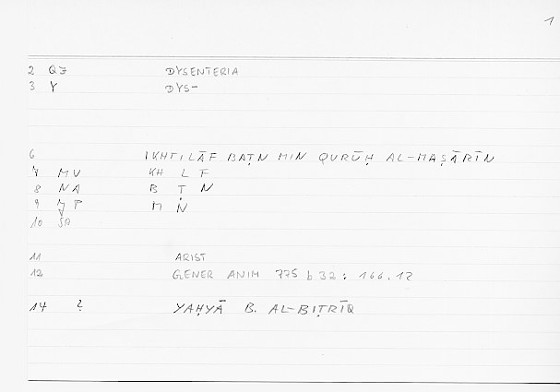 1
2 QZ DYSENTERIA
3 Y DYS-
6 IKHTILĀF BAṬN MIN QURŪḤ AL-MAṢĀRĪN
7 MV KH L F
8 NA B Ṭ N
9 JP M N
10 SA
11 ARIST
12 GENER ANIM 775 b 32 : 166.12
14 ? YAḤYĀ B. AL-BIṬRĪQ